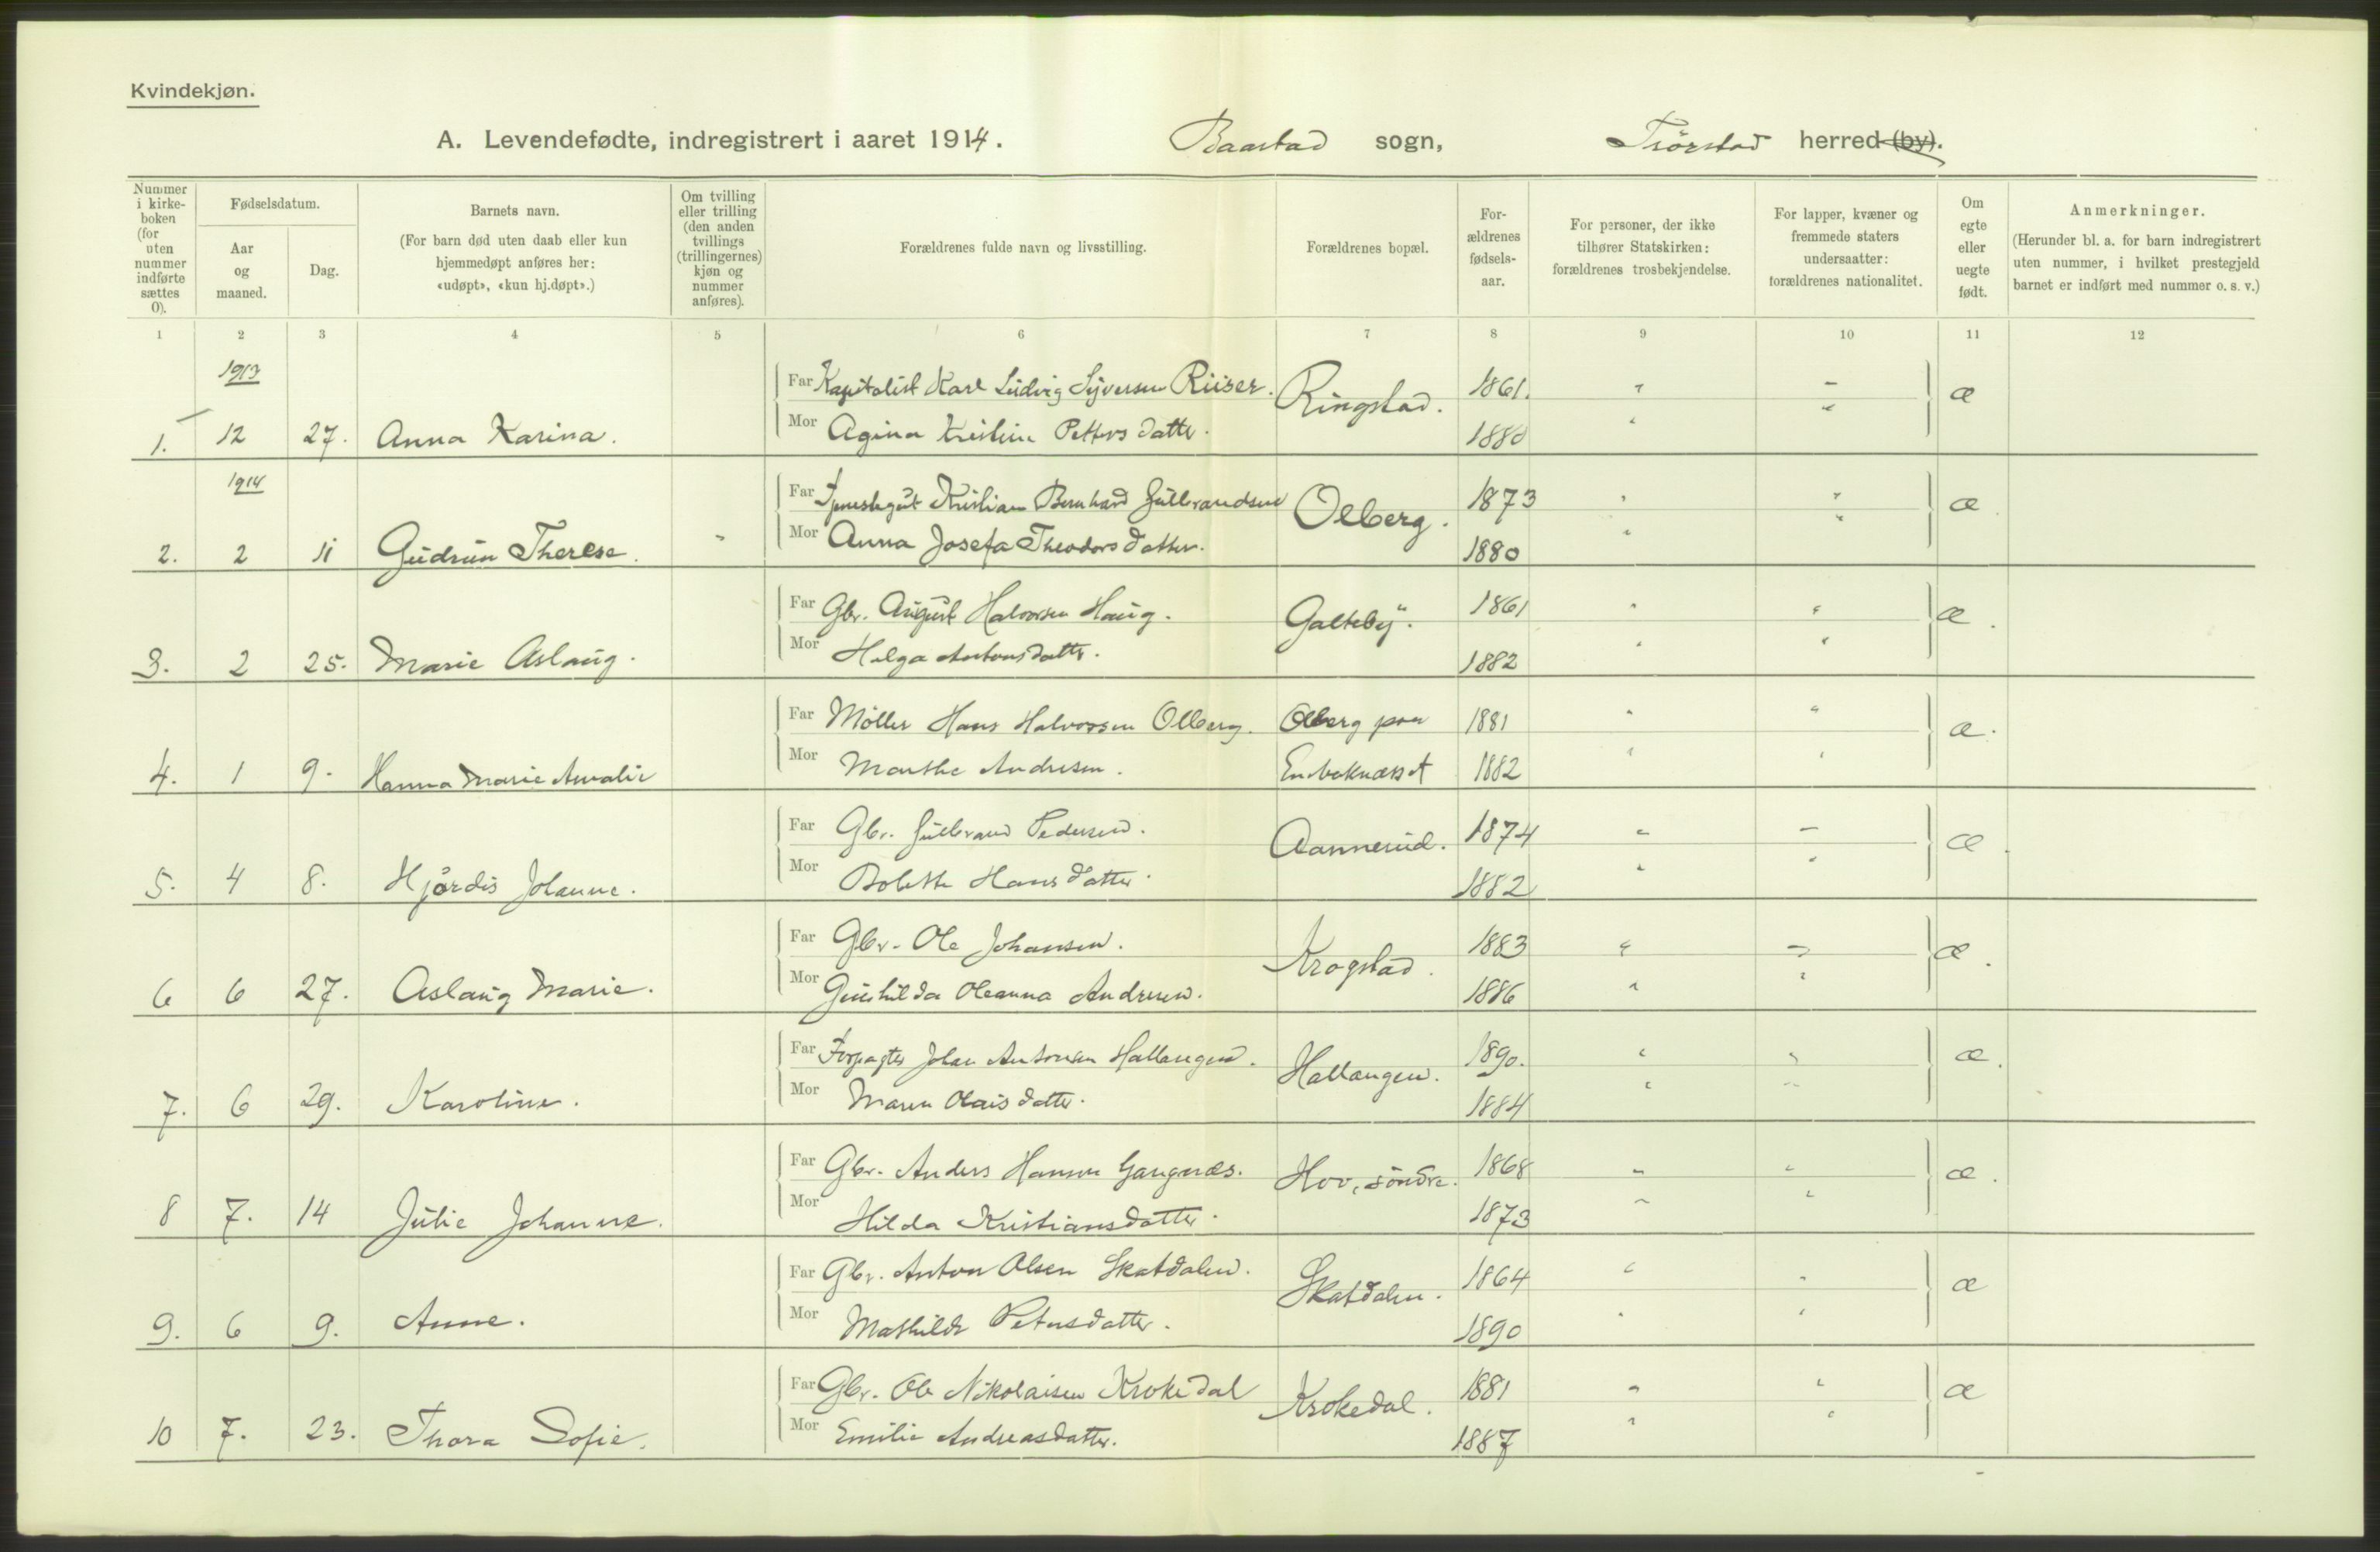 Kvindekjøn.
A. Levendefødte, indregistrert i aaret 1914. Baastad sogn, Trörstad herred (by).
Nummer i kirke-boken (for uten nummer indførte sættes 0).
Fødselsdatum.
Aar og maaned.
Dag.
Barnets navn.
(For barn død uten daab eller kun hjemmedøpt anføres her: «udøpt», «kun hj.døpt».)
Om tvilling eller trilling (den anden tvillings (trillingernes) kjøn og nummer anføres).
Forældrenes fulde navn og livsstilling.
Forældrenes bopæl.
For-ældrenes fødsels-aar.
For personer, der ikke tilhører Statskirken: forældrenes trosbekjendelse.
For lapper, kvæner og fremmede staters undersaatter: forældrenes nationalitet.
Om egte eller uegte født.
Anmerkninger.
(Herunder bl. a. for barn indregistrert uten nummer, i hvilket prestegjeld barnet er indført med nummer o. s. v.)
1 2 3 4 5 6 7 8 9 10 11 12
1913
Far Kapitalist Karl Ludvig Syversen Riiser. Ringstad. 1861. " - æ
1. 12 27. Anna Karina. Mor Agina Kristine Petters datter. 1880 " "
1914
Far Tjenestegut Kristian Bernhard Gulbrandsen Olberg. 1873 " " æ.
2. 2 11 Gudrun Therese. " Mor Anna Josefa Theodors datter. 1880 " "
Far Gbr. August Halvorsen Haug. Galteby. 1861 " " æ.
3. 2 25. Marie Aslaug. Mor Helga Antonsdatter. 1882 " "
Far Möller Hans Halvorsen Olberg. Olberg paa 1881 " " æ.
4. 1 9. Hanna Marie Amalie Mor Marthe Andresen. 1882 " "
Far Gbr. Gulbrand Pedersen. Aannerud. 1874 " - æ.
5. 4 8. Hjördis Johanne. Mor Bolette Hans datter. 1882 " "
Far Gbr. Ole Johansen. Krogstad. 1883 " " æ.
6 6 27. Aslaug Marie. Mor Gunhilda Oleanna Andresen. 1886 " "
Far Forpagter Johan Antonsen Hallangen. Hallangen. 1890. " " æ.
7. 6 29. Karoline. Mor Maren Olaisdatter. 1884 " "
Far Gbr. Anders Hansen Gangnæs. Hov, söndre. 1868 " " æ.
8 7. 14 Julie Johanne. Mor Hilda Kristiansdatter. 1873 " "
Far Gbr. Anton Olsen Skatdalen. Skatdalen. 1864 " " æ
9. 6 9. Anne. Mor Mathilde Petersdatter. 1890 " "
Far Gbr. Ole Nikolaisen Krokedal Krokedal. 1881 " " æ
10 7. 23. Thora Sofie. Mor Emilie Andreasdatter. 1887 " "